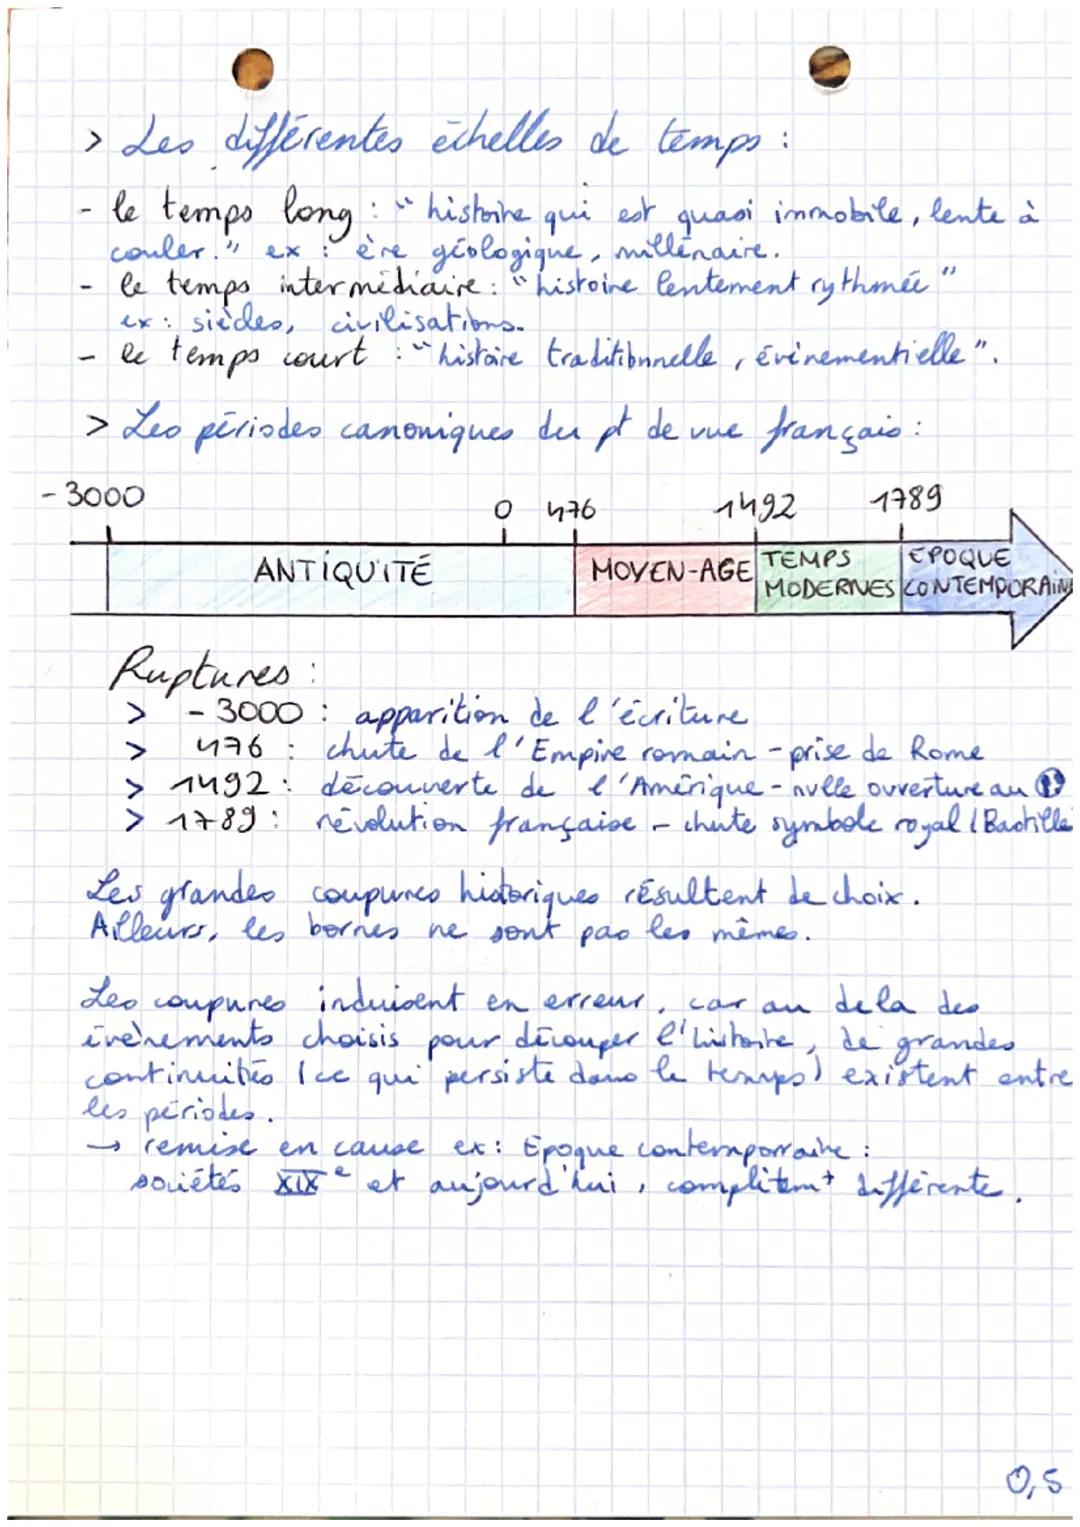 > Les différentes échelles de temps :
- le temps long : "histoire qui est quasi immobile, lente à
couler." ex : ère géologique, millénaire.
- le temps intermédiaire : "histoire lentement rythmée"
ex : siècles, civilisations.
- le temps court : "histoire traditionnelle, évènementielle".
> Les périodes canoniques du pt de vue français :
- 3000 0 476 1492 1789
ANTIQUITÉ MOYEN-AGE TEMPS MODERNES EPOQUE CONTEMPORAINE
Ruptures :
> - 3000 : apparition de l'écriture
> 476 : chute de l'Empire romain - prise de Rome
> 1492 : découverte de l'Amérique - nvlle ouverture au
> 1789 : révolution française - chute symbole royal (Bastille
Les grandes coupures historiques résultent de choix.
Ailleurs, les bornes ne sont pas les mêmes.
Les coupures induisent en erreur, car au dela des
évènements choisis pour découper l'histoire, de grandes
continuités (ce qui persiste dans le temps) existent entre
les périodes.
→ remise en cause ex : Epoque contemporaine :
sociétés XIXe et aujourd'hui, complètemt différente.
0,5